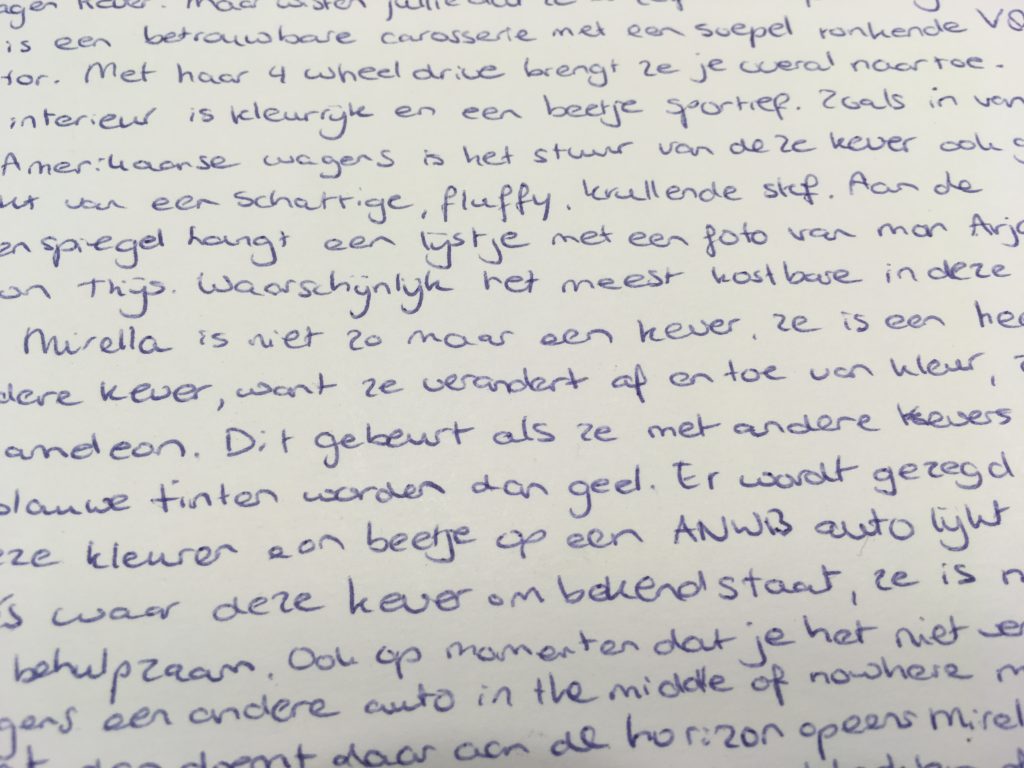 Kever. Maar wisten jullie dat ze
is een betrouwbare carosserie met een soepel ronkende V8
tor. Met haar 4 wheel drive brengt ze je overal naar toe.
interieur is kleurrijk en een beetje sportief. Zoals in
Amerikaanse wagens is het stuur van deze kever ook
van een schattige, fluffy, krullende stof. Aan de
enspiegel hangt een lijstje met een foto van man Arj
Thijs. Waarschijnlijk het meest kostbare in deze
Mirella is niet zo maar een kever, ze is een hee
dere kever, want ze verandert af en toe van kleur,
ameleon. Dit gebeurt als ze met andere kevers
blauwe tinten worden dan geel. Er wordt gezegd
eze kleuren een beetje op een ANWB auto lijkt
is waar deze kever om bekend staat, ze is
behulpzaam. Ook op momenten dat je het niet ver
gens een andere auto in the middle of nowhere
dan doemt daar aan de horizon opeens Mirel